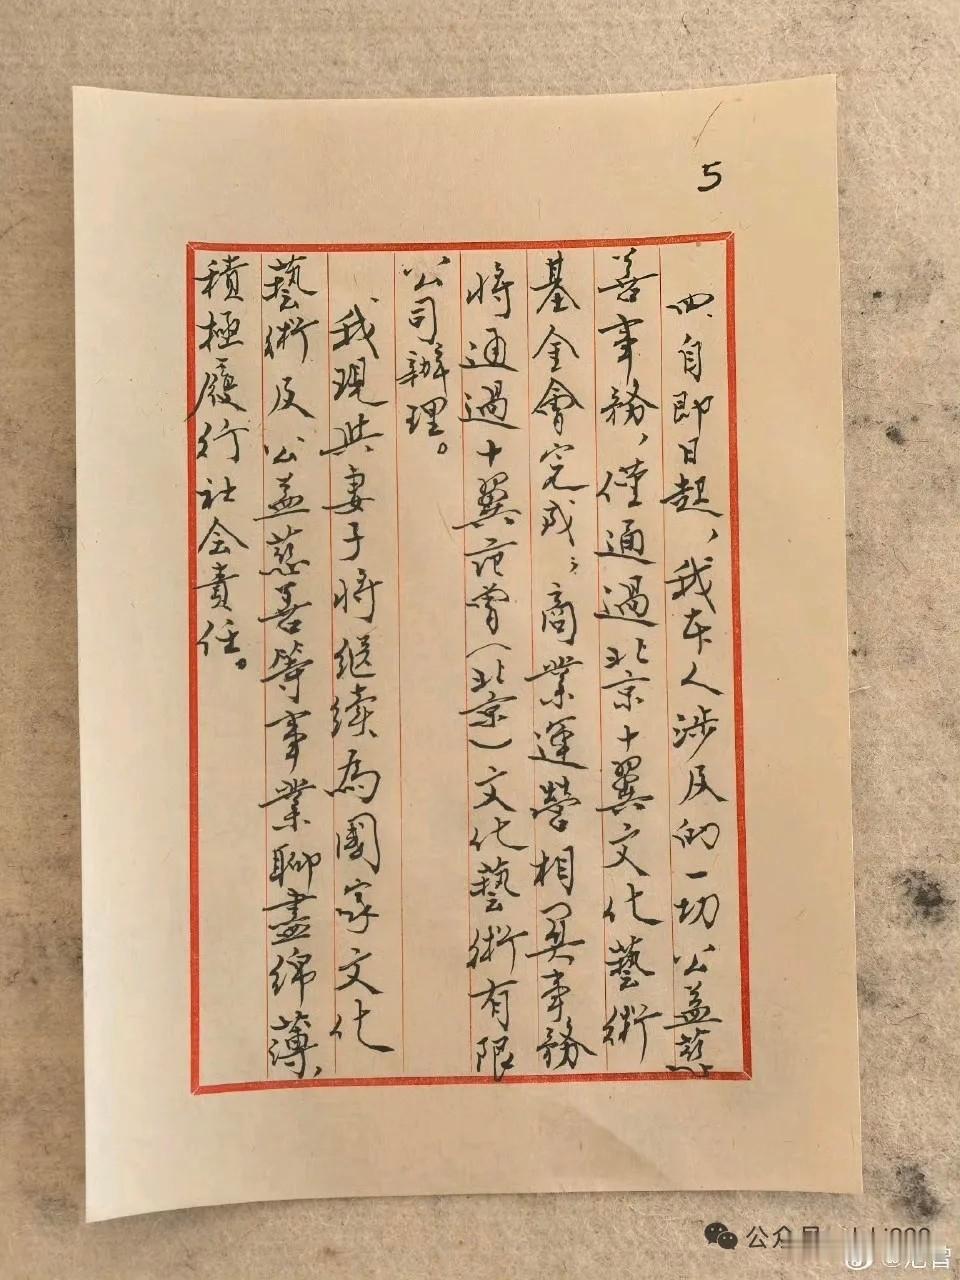 5
四、自即日起，我本人涉及的一切公益慈
善事務，僅通過北京十翼文化藝術
基金會完成；商業運營相関事務
将通過十翼范曾（北京）文化藝術有限
公司辦理。
我現與妻子将继续為國家文化
藝術及公益慈善等事業聊盡綿薄，
積極履行社会責任。
公众号
@范曾